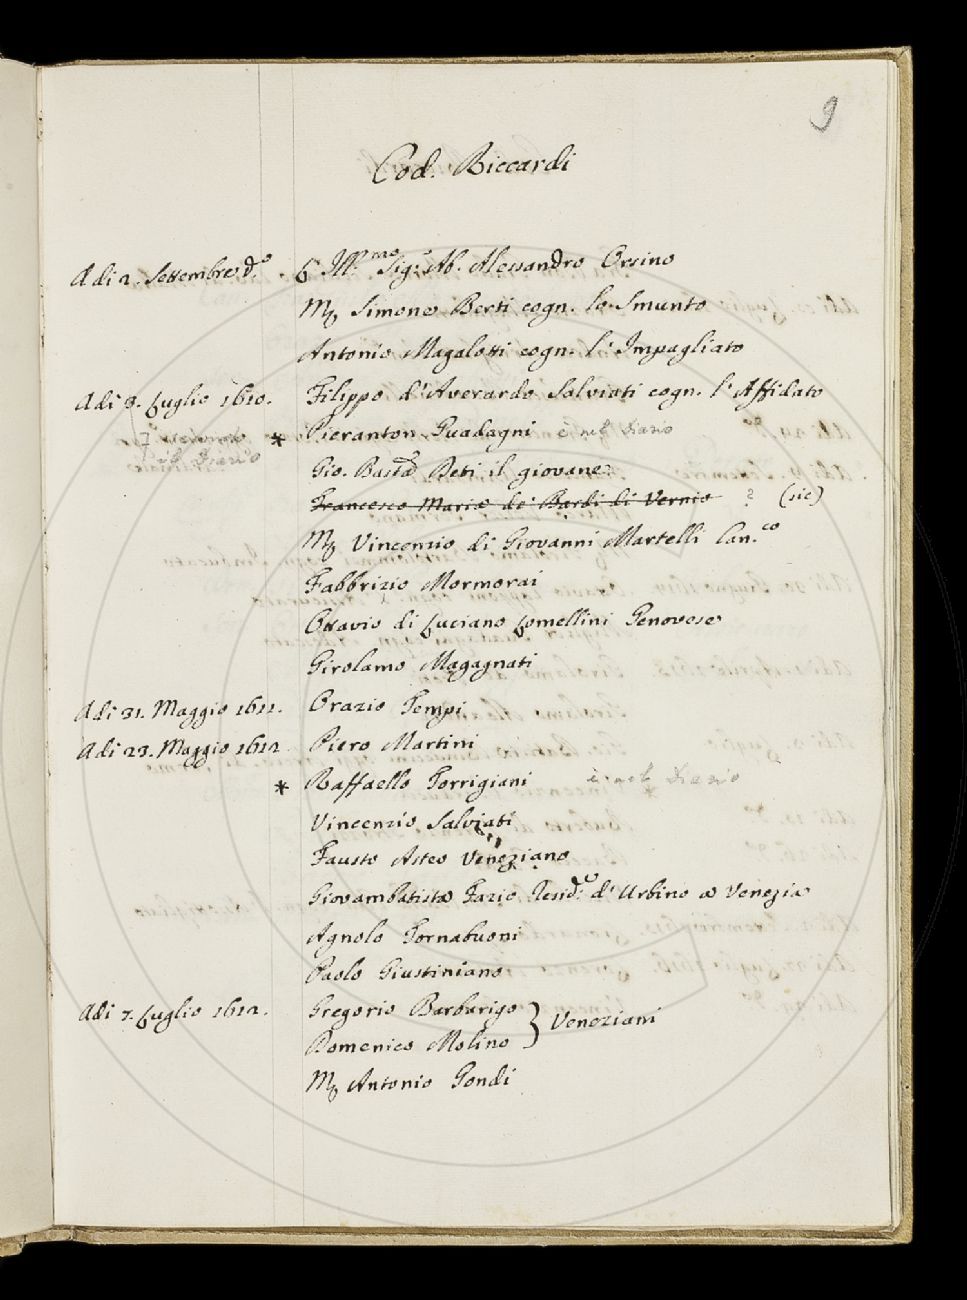 9
Cod. Riccardi
Adi 2. Settembre d.º Ill.mo Sig.r Ab. Alessandro Orsino
Mͬ Simone Berti cogn. lo Smunto
Antonio Magalotti cogn. l'Impagliato
Adi 8. Luglio 1610. Filippo d'Averardo Salviati cogn. l'Affidato
* Pieranton Guadagni è nel Diario
il Diario
Gio. Batta Deti il giovane
Francesco Maria de' Bardi di Vernio ? (sic)
Mͬ Vincenzio di Giovanni Martelli Can.co
Fabbrizio Mormorai
Ottavio di Luciano Lomellini Genovese
Girolamo Magagnati
Adi 31. Maggio 1611. Orazio Tempi
Adi 23. Maggio 1612 Piero Martini
* Raffaello Torrigiani è nel Diario
Vincenzio Salviati
Fausto Asteo Veneziano
Giovambatista Fazio Resid.e d'Urbino a Venezia
Agnolo Tornabuoni
Paolo Giustiniano
Adi 7. Luglio 1612. Gregorio Barbarigo } Veneziani
Domenico Molino
Mͬ Antonio Gondi